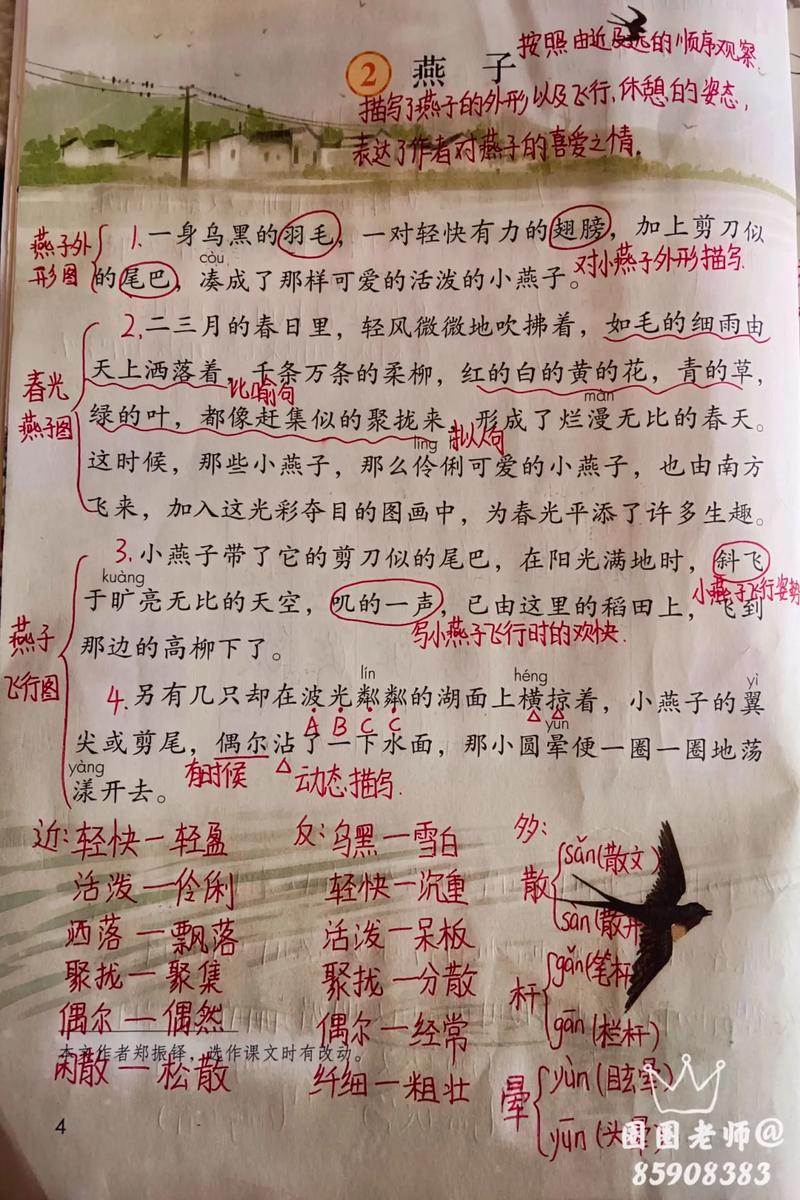 2 燕子
按照由近及远的顺序观察.
描写了燕子的外形以及飞行、休憩的姿态,
表达了作者对燕子的喜爱之情.
燕子外
形图
1.一身乌黑的羽毛，一对轻快有力的翅膀，加上剪刀似
còu
的尾巴，凑成了那样可爱的活泼的小燕子。
对小燕子外形描写.
春光
燕子图
2.二三月的春日里，轻风微微地吹拂着，如毛的细雨由
天上洒落着，千条万条的柔柳，红的白的黄的花，青的草，
比喻句
màn
绿的叶，都像赶集似的聚拢来，形成了烂漫无比的春天。
líng lì
拟人句
这时候，那些小燕子，那么伶俐可爱的小燕子，也由南方
飞来，加入这光彩夺目的图画中，为春光平添了许多生趣。
燕子
飞行图
3.小燕子带了它的剪刀似的尾巴，在阳光满地时，斜飞
小燕子飞行姿势
kuàng
于旷亮无比的天空，叽的一声，已由这里的稻田上，飞到
写小燕子飞行时的欢快.
那边的高柳下了。
lín héng yì
4.另有几只却在波光粼粼的湖面上横掠着，小燕子的翼
A B C C
yùn
尖或剪尾，偶尔沾了一下水面，那小圆晕便一圈一圈地荡
有时候
动态描写.
yàng
漾开去。
近:轻快—轻盈
活泼—伶俐
洒落—飘落
聚拢—聚集
偶尔—偶然
闲散—松散
反:乌黑—雪白
轻快—沉重
活泼—呆板
聚拢—分散
偶尔—经常
纤细—粗壮
多:
散 sǎn(散文)
sàn(散开
杆 gǎn(笔杆
gān(栏杆)
晕 yùn(目眩晕)
yūn(头晕)
本文作者郑振铎，选作课文时有改动。
4
圈圈老师@
85908383